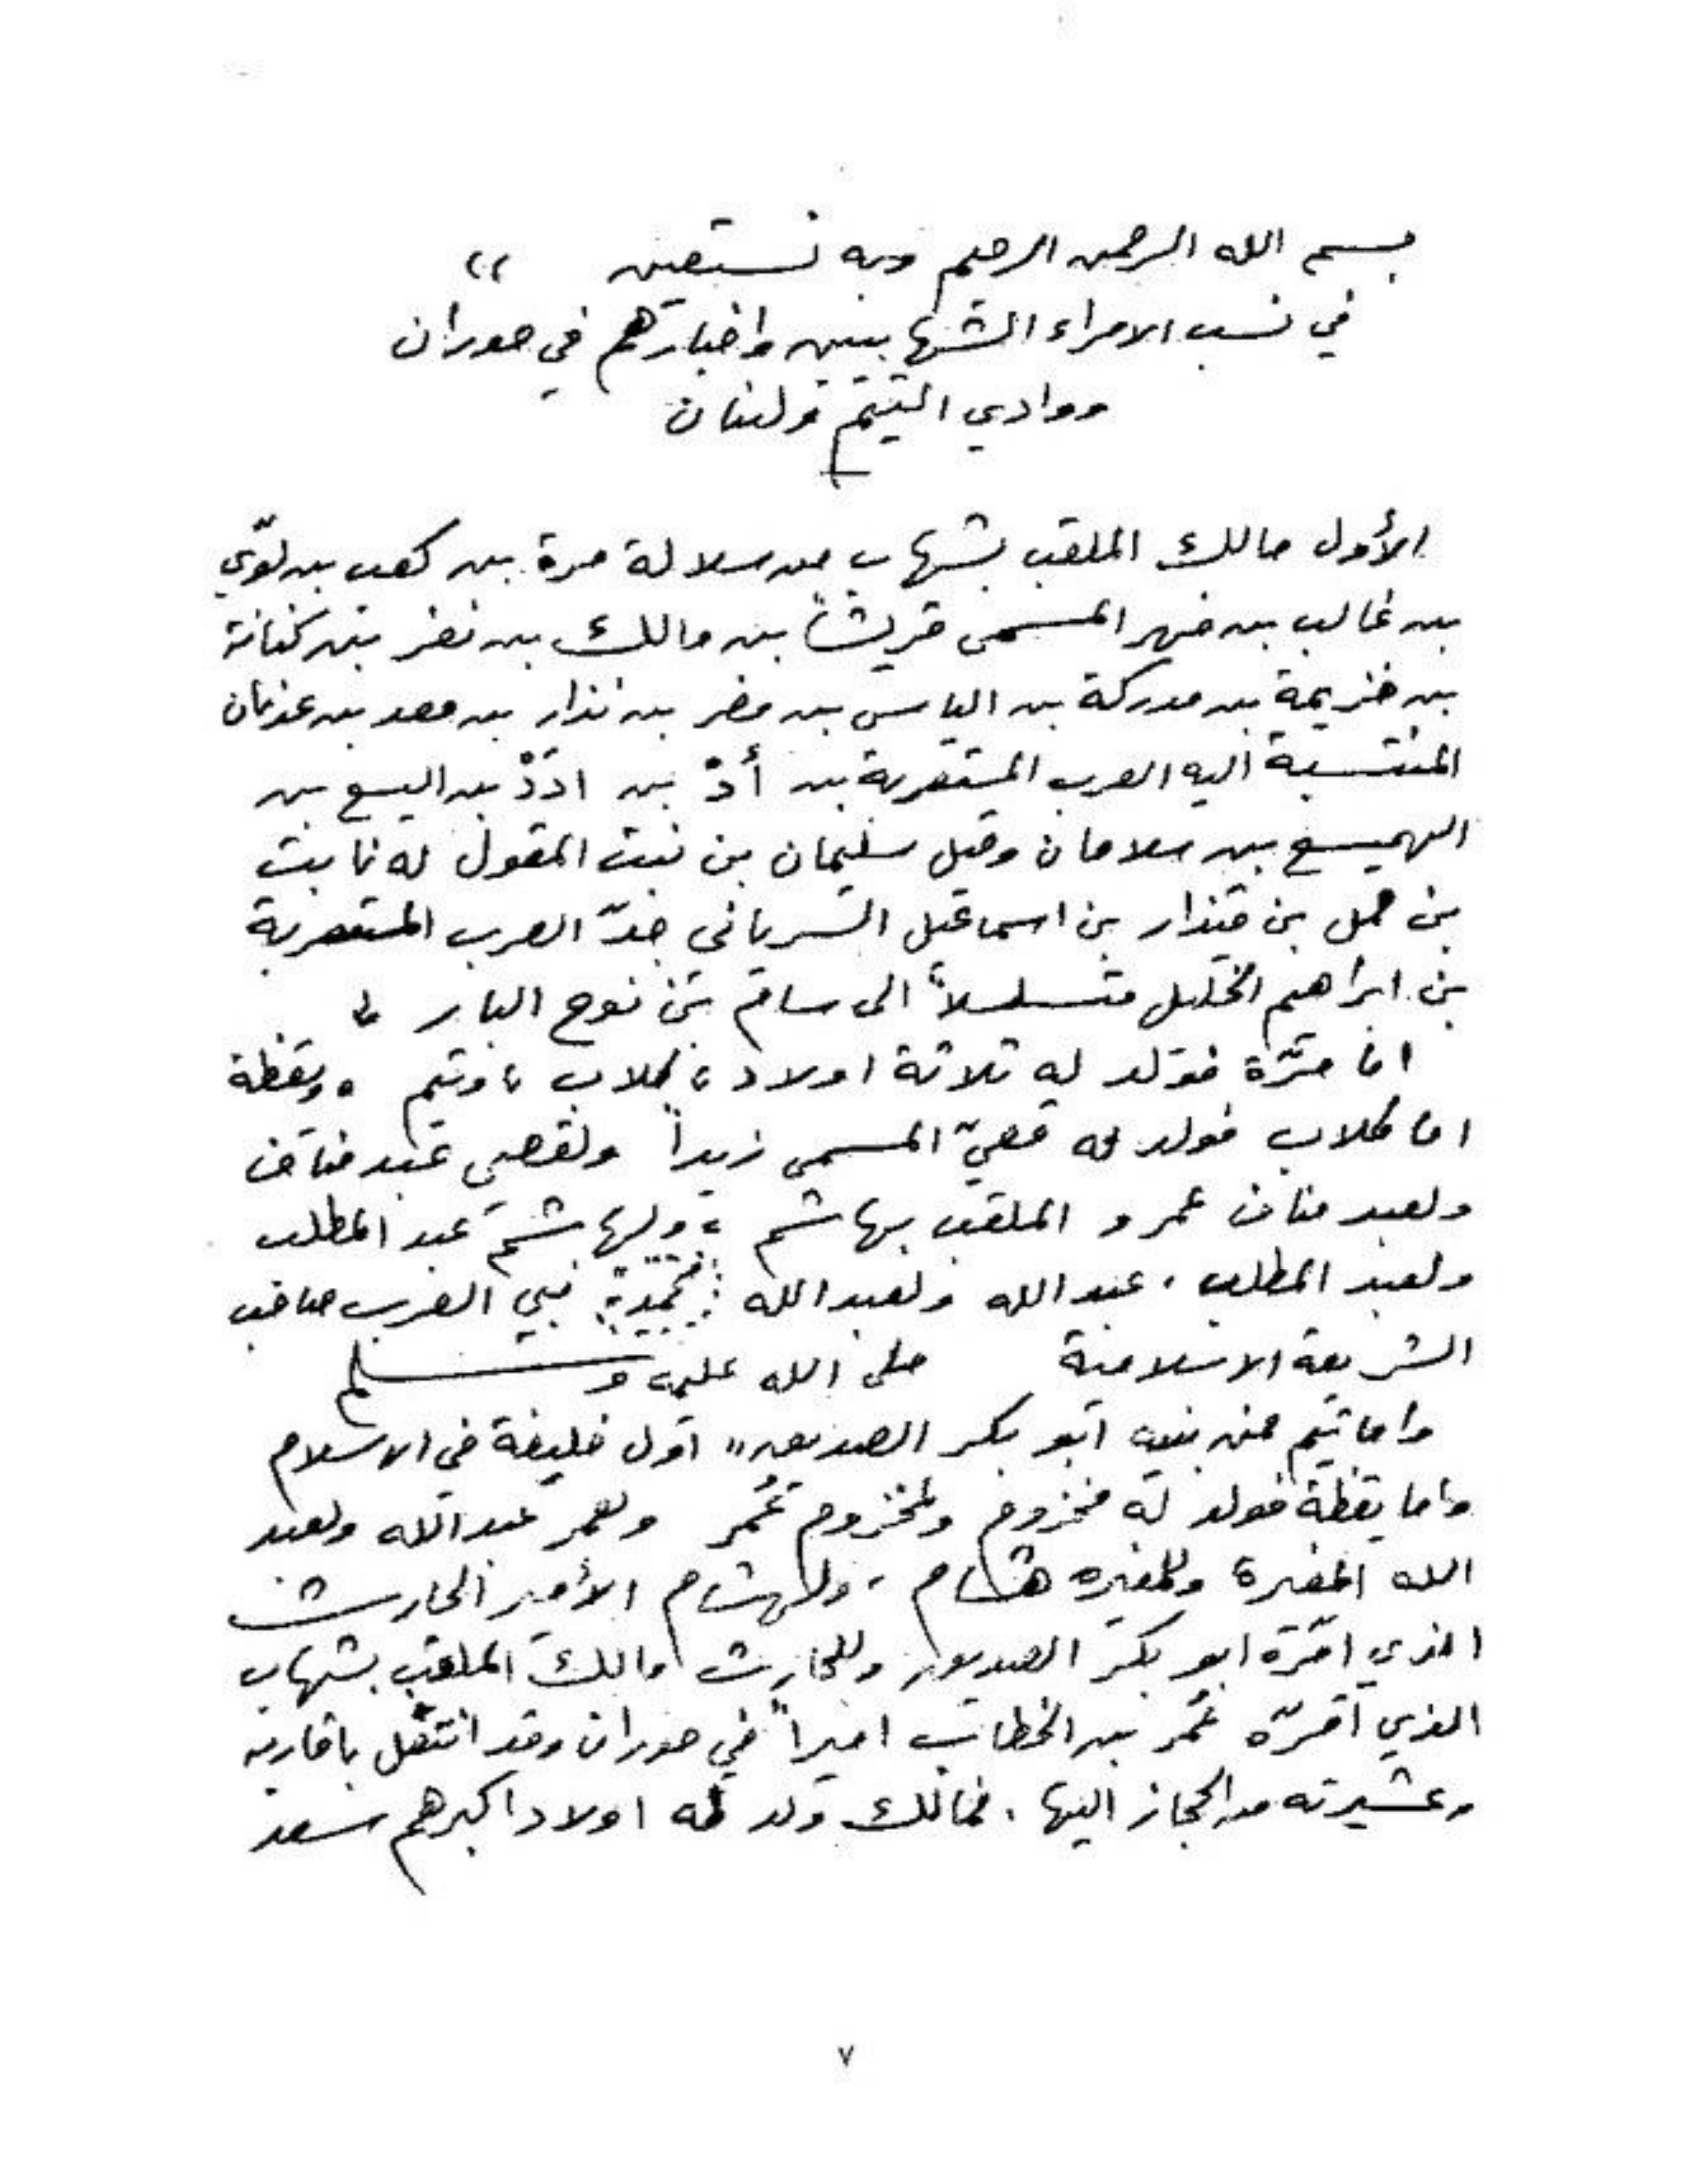 بسم الله الرحمن الرحيم وبه نستعين ،،
في نسب الامراء الشهابيين واخبارهم في حوران
ووادي التيتم ولبنان
الأول مالك الملقب بشهاب من سلالة مرة بن كعب بن لوّي
بن غالب بن فهر المسمى قريشاً بن مالك بن نضر بن كنانة
بن خزيمة بن مدركة بن الياس بن مضر بن نذار بن معد بن عدنان
المنتسبة اليه العرب المستعربة بن أدّ بن ادَدْ بن اليسع بن
الهميسع بن سلامان وقيل سليمان بن نبت المقول له نابت
بن حمل بن قيذار بن اسماعيل السرياني جدّ العرب المستعربة
بن ابراهيم الخليل متسلسلاً الى سام بن نوح البار
اما مرّة فولد له ثلاثة اولاد، كلاب، وتيم، ويقظة
اما كلاب فولد له قصيّ المسمى زيداً ولقصى عبد مناف
ولعبد مناف عمرو الملقب بهاشم، ولهاشم عبد المطلب
ولعبد المطلب، عبد الله ولعبد الله محمد نبي العرب صاحب
الشريعة الاسلامية صلى الله عليه وسلم
واما تيم فمن بنيه ابو بكر الصديق،، اول خليفة في الاسلام
واما يقظة فولد له مخزوم ولمخزوم عُمر ولعمر عبد الله ولعبد
الله المغيرة وللمغيره هشام، ولهشام الأمير الحارث
الذي امّره ابو بكر الصديق وللحارث مالك الملقب بشهاب
الذي اقرّه عُمر بن الخطاب اميراً في حوران وقد انتقل باقاربه
وعشيرته من الحجاز اليها. فمالك ولد له اولاد اكبرهم سعد
٧